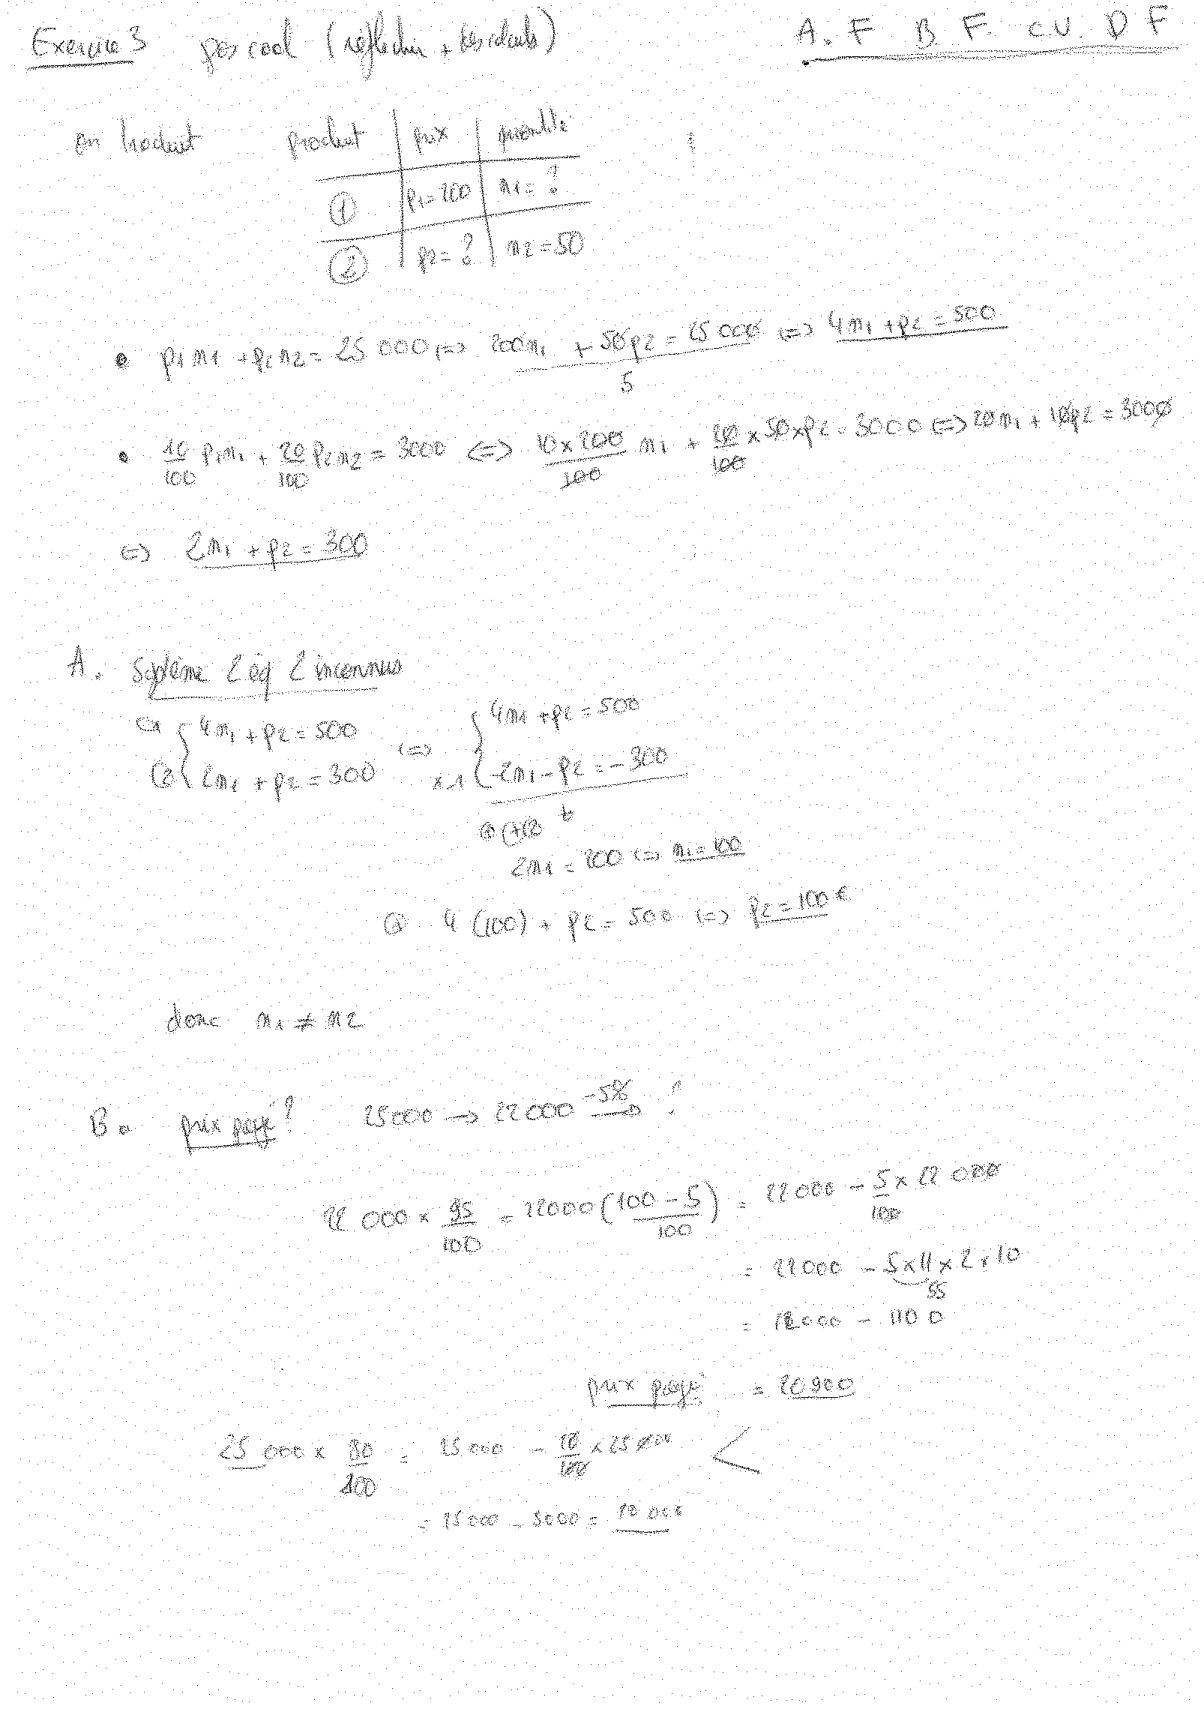 Exercice 3 pas cool (réflection + les calculs) A. F B. F. C V. D F
on traduit produit | prix | quantité
① | p1 = 200 | n1 = ?
② | p2 = ? | n2 = 50
• p1 n1 + p2 n2 = 25 000 <=> 200n1 + 50p2 = 25 000 <=> 4n1 + p2 = 500
5
• 10/100 p1n1 + 20/100 p2n2 = 3000 <=> 10 x 200/100 n1 + 20/100 x 50 x p2 = 3000 <=> 20n1 + 10p2 = 3000
<=> 2n1 + p2 = 300
A. Système 2 éq 2 inconnues
① { 4n1 + p2 = 500 <=> { 4n1 + p2 = 500
② { 2n1 + p2 = 300 x-1 { -2n1 - p2 = -300
① + ②
2n1 = 200 <=> n1 = 100
① 4 (100) + p2 = 500 <=> p2 = 100 €
donc n1 ≠ n2
B. prix payé ? 25000 → 22000 -5% → ?
22 000 x 95/100 = 22000 (100 - 5/100) = 22000 - 5/100 x 22 000
= 22000 - 5 x 11 x 2 x 10
55
= 22000 - 1100
prix payé = 20900
25 000 x 80/100 = 25 000 - 20/100 x 25 000 <
= 25000 - 5000 = 20 000